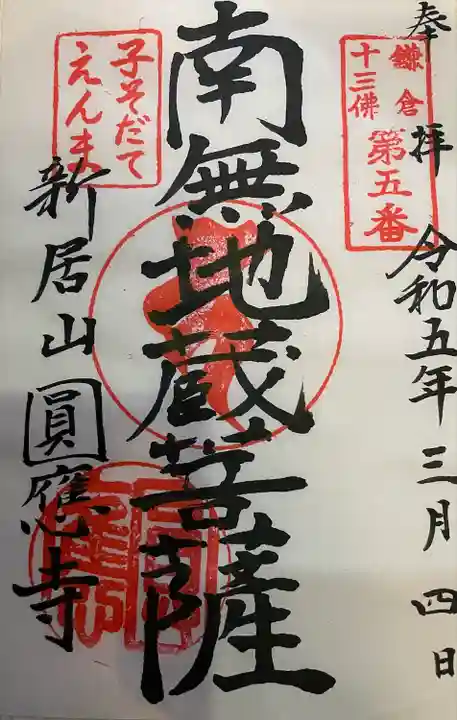 奉拝
鎌倉
十三佛
第五番
令和五年三月四日
南無地蔵菩薩
子そだて
えんま
新居山圓應寺